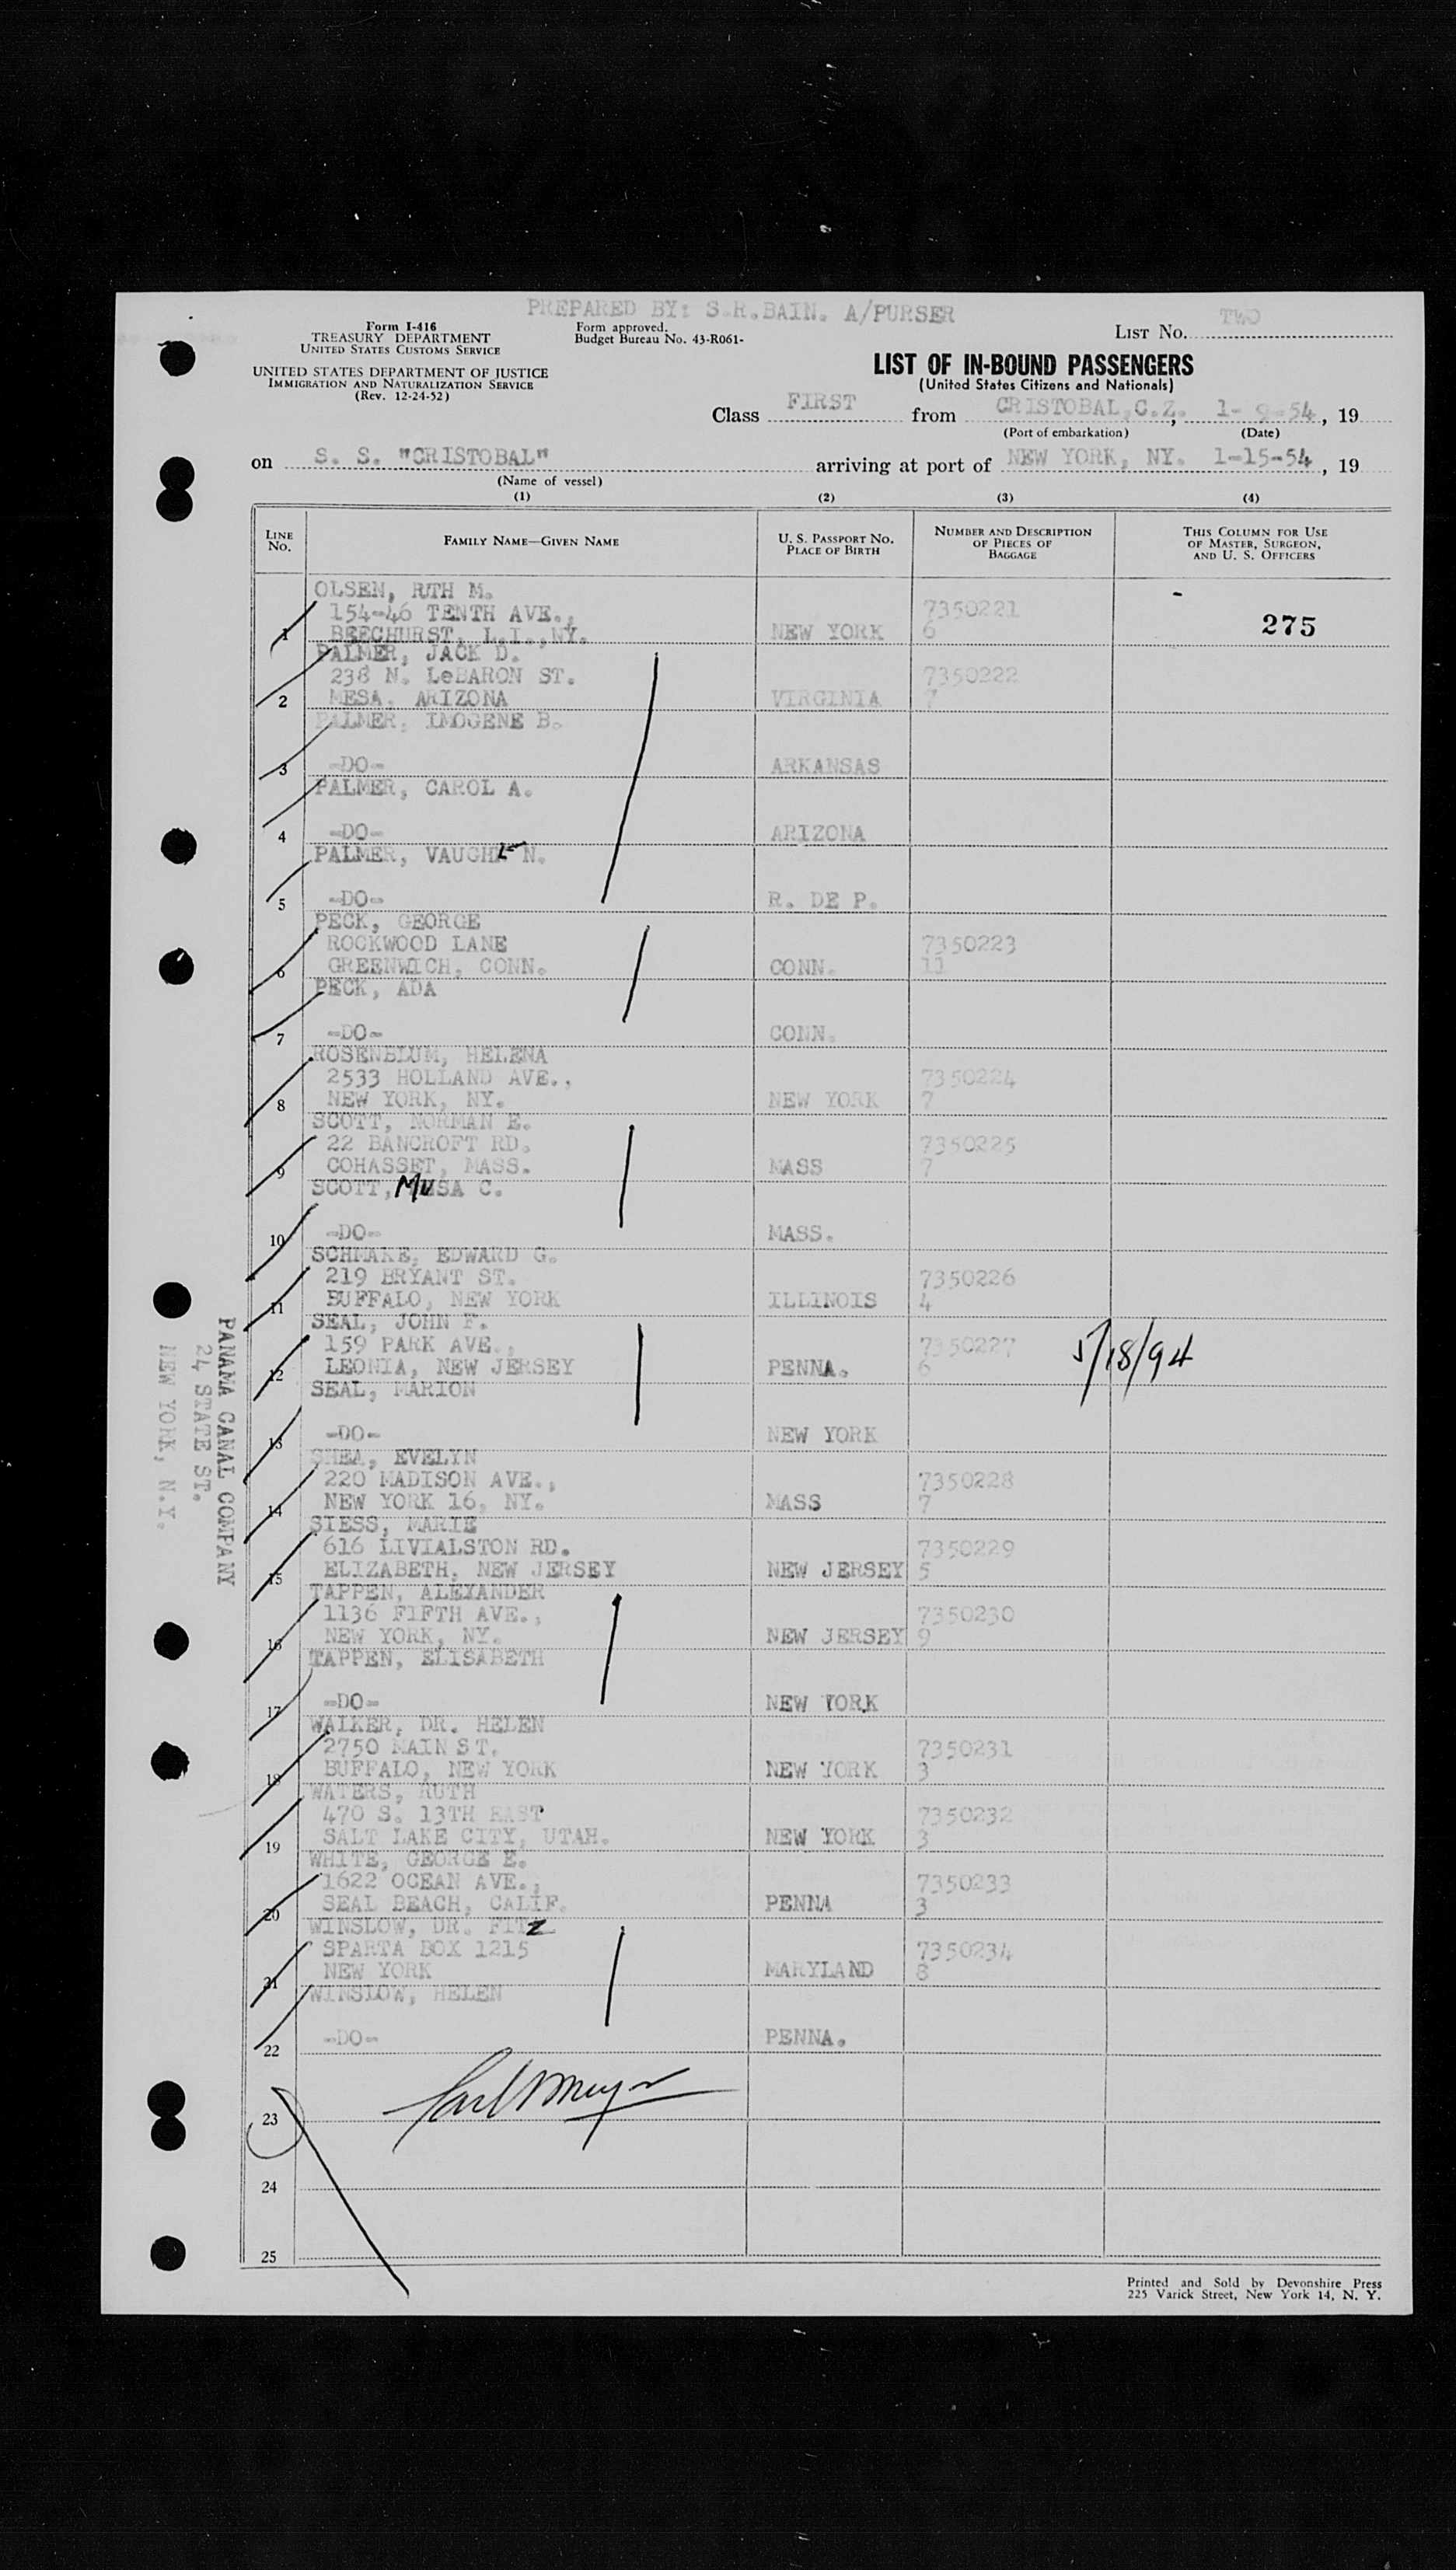 PREPARED BY: S.R.BAIN. A/PURSER
Form I-416
TREASURY DEPARTMENT
UNITED STATES CUSTOMS SERVICE
UNITED STATES DEPARTMENT OF JUSTICE
IMMIGRATION AND NATURALIZATION SERVICE
(Rev. 12-24-52)
Form approved.
Budget Bureau No. 43-R061-
LIST No. TWO
LIST OF IN-BOUND PASSENGERS
(United States Citizens and Nationals)
Class FIRST from CRISTOBAL,C.Z., 1-9-54, 19
(Port of embarkation) (Date)
on S. S. "CRISTOBAL" arriving at port of NEW YORK, NY. 1-15-54, 19
(Name of vessel)
(1) (2) (3) (4)
LINE No. FAMILY NAME—GIVEN NAME U. S. PASSPORT No. PLACE OF BIRTH NUMBER AND DESCRIPTION OF PIECES OF BAGGAGE THIS COLUMN FOR USE OF MASTER, SURGEON, AND U. S. OFFICERS
OLSEN, RTH M.
154-46 TENTH AVE., 7350221
1 BEECHURST, L.I.,NY. NEW YORK 6 275
PALMER, JACK D.
238 N. LeBARON ST. 7350222
2 MESA, ARIZONA VIRGINIA 7
PALMER, IMOGENE B.
3 -DO- ARKANSAS
PALMER, CAROL A.
4 -DO- ARIZONA
PALMER, VAUGHN N.
5 -DO- R. DE P.
PECK, GEORGE
ROCKWOOD LANE 7350223
6 GREENWICH, CONN. CONN. 11
PECK, ADA
7 -DO- CONN.
ROSENBLUM, HELENA
2533 HOLLAND AVE., 7350224
8 NEW YORK, NY. NEW YORK 7
SCOTT, NORMAN E.
22 BANCROFT RD. 7350225
9 COHASSET, MASS. MASS 7
SCOTT, MUSA C.
10 -DO- MASS.
SCHMAKE, EDWARD G.
219 BRYANT ST. 7350226
11 BUFFALO, NEW YORK ILLINOIS 4
SEAL, JOHN F.
159 PARK AVE., 7350227
12 LEONIA, NEW JERSEY PENNA. 6 5/18/94
SEAL, MARION
13 -DO- NEW YORK
SHEA, EVELYN
220 MADISON AVE., 7350228
14 NEW YORK 16, NY. MASS 7
SIESS, MARIE
616 LIVIALSTON RD. 7350229
15 ELIZABETH, NEW JERSEY NEW JERSEY 5
TAPPEN, ALEXANDER
1136 FIFTH AVE., 7350230
16 NEW YORK, NY. NEW JERSEY 9
TAPPEN, ELISABETH
17 -DO- NEW YORK
WALKER, DR. HELEN
2750 MAIN ST. 7350231
18 BUFFALO, NEW YORK NEW YORK 3
WATERS, RUTH
470 S. 13TH EAST 7350232
19 SALT LAKE CITY, UTAH. NEW YORK 3
WHITE, GEORGE E.
1622 OCEAN AVE., 7350233
20 SEAL BEACH, CALIF. PENNA 3
WINSLOW, DR. FITZ
SPARTA BOX 1215 7350234
21 NEW YORK MARYLAND 8
WINSLOW, HELEN
22 -DO- PENNA.
23
24
25
PANAMA CANAL COMPANY
24 STATE ST.
NEW YORK, N.Y.
Printed and Sold by Devonshire Press
225 Varick Street, New York 14, N. Y.